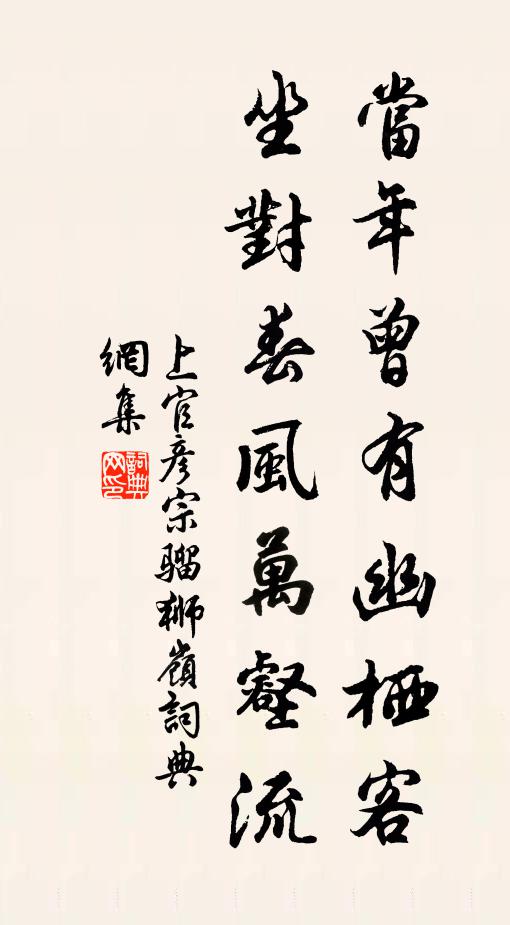 當年曾有幽栖客
坐對春風萬壑流
上官彥宗騮狮嶺詞典
網集
詞典
网印